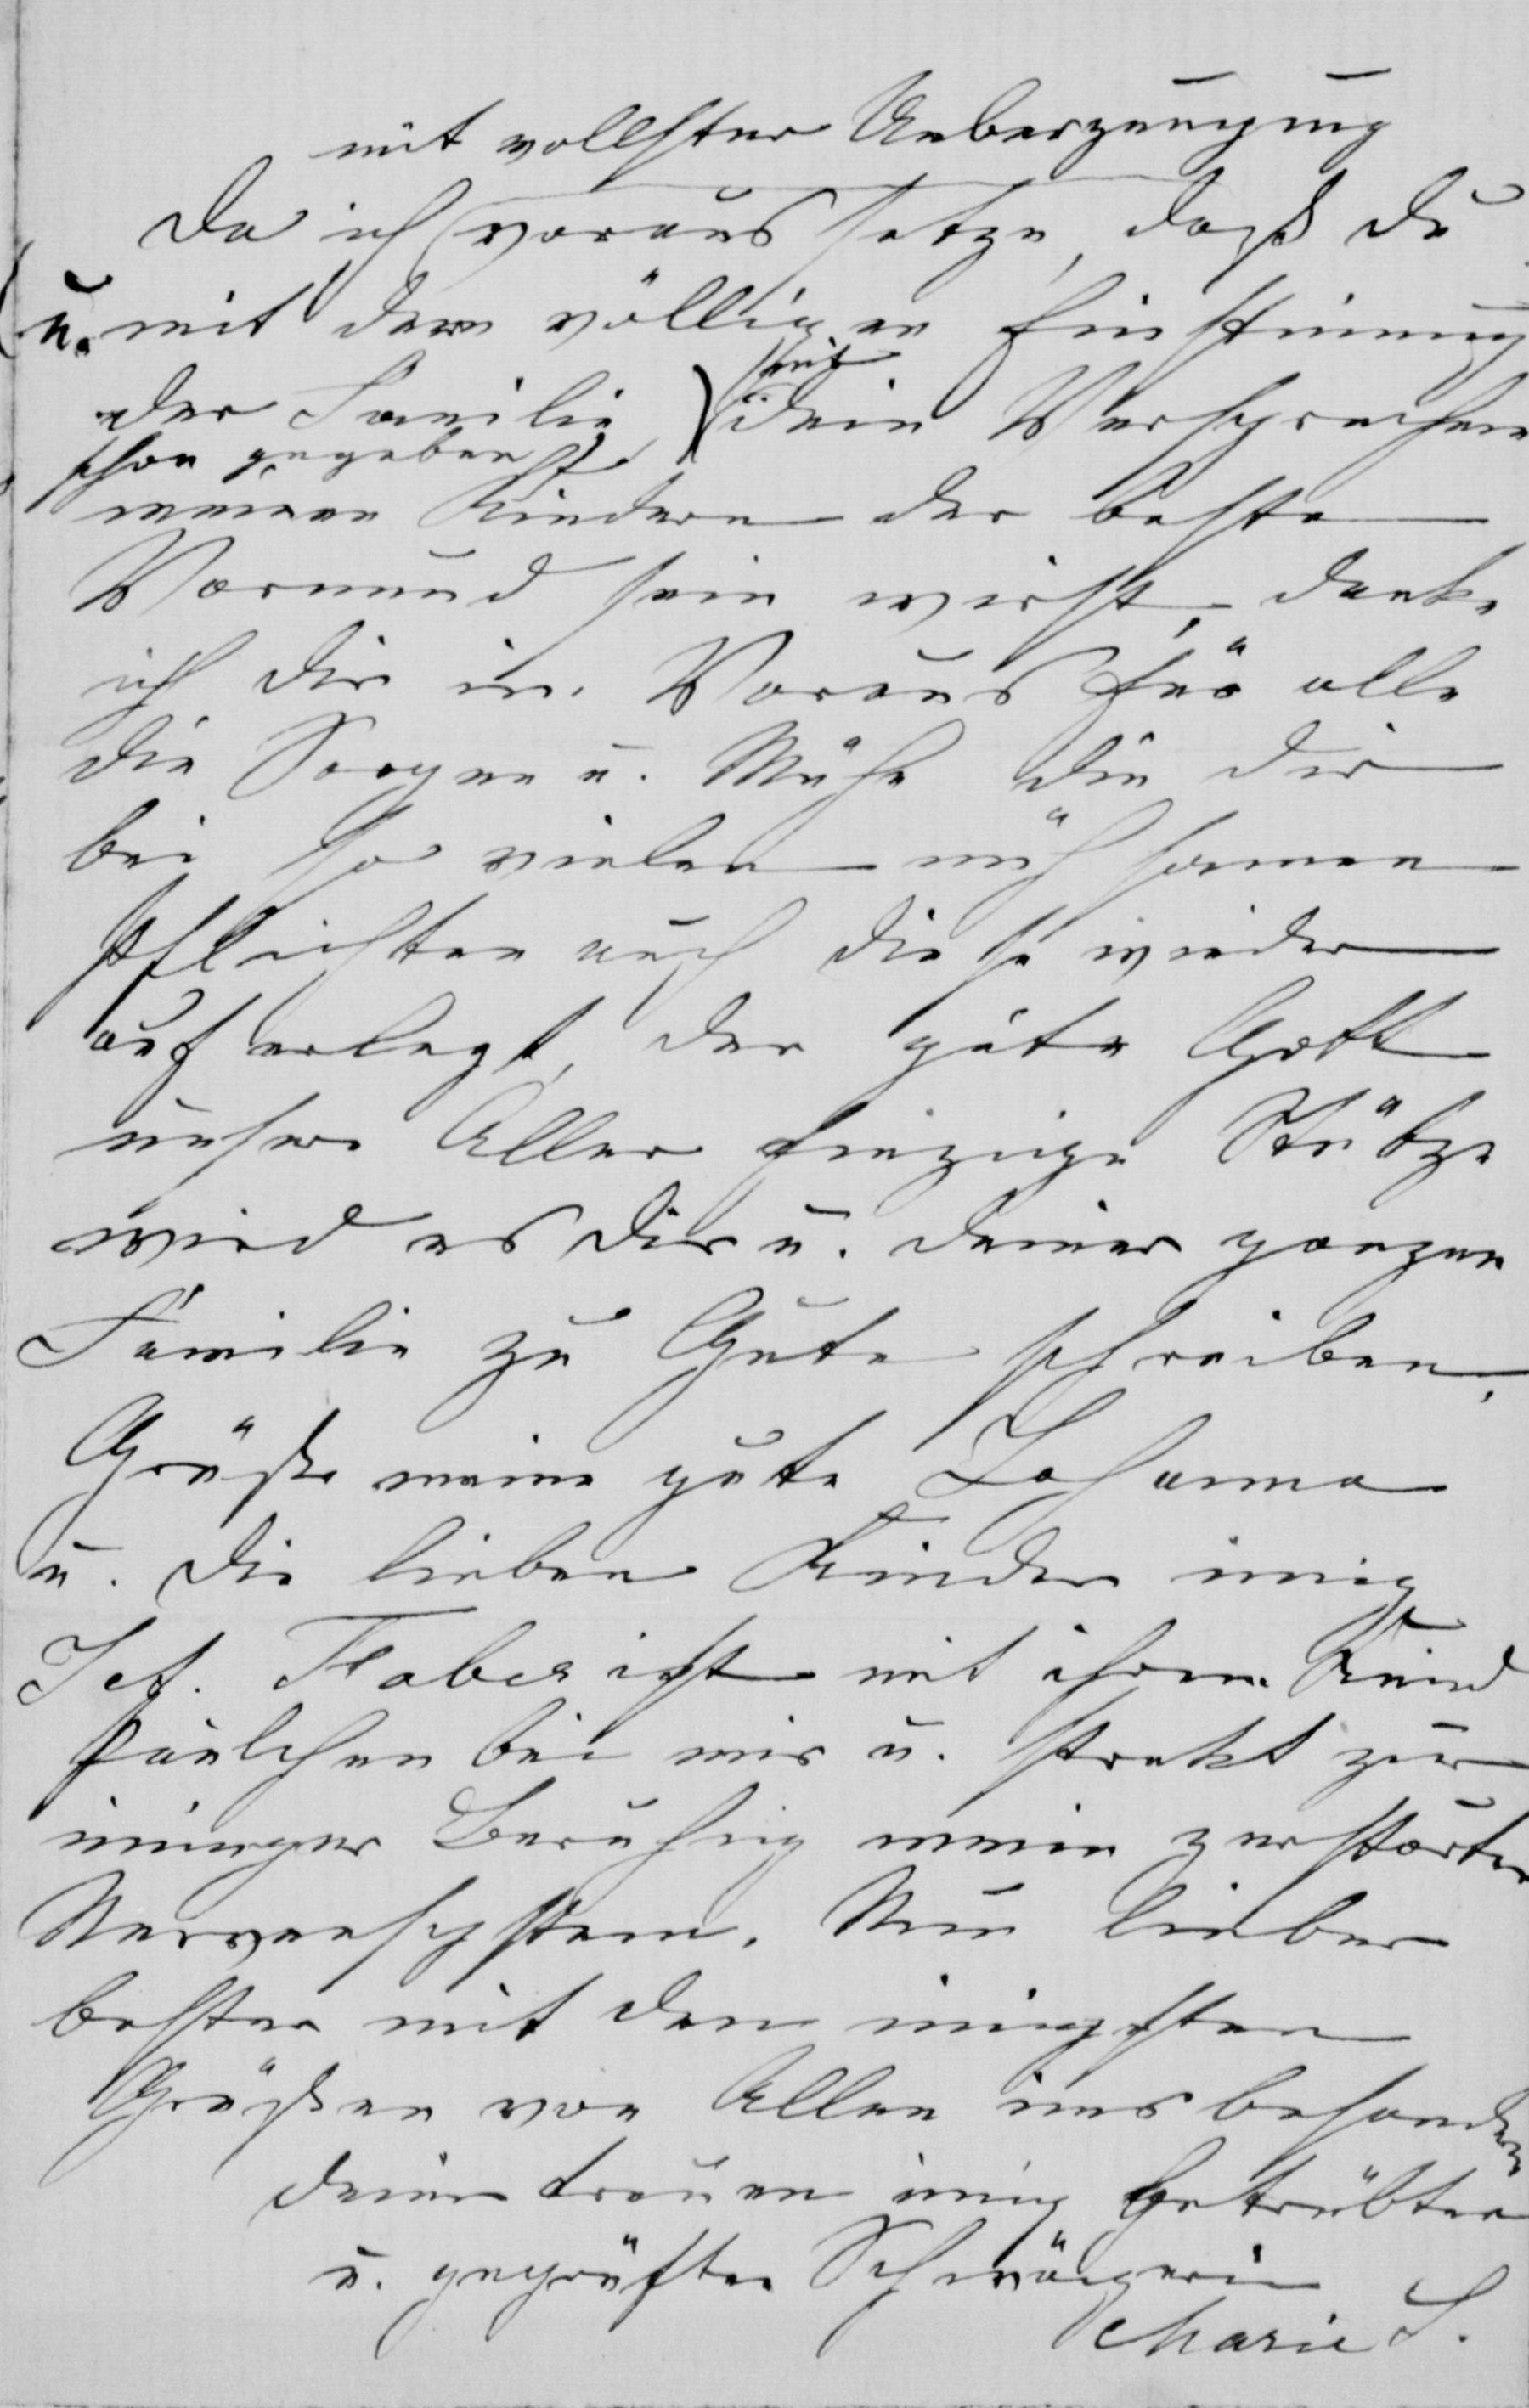 mit vollster Ueberzeugung
Da ich voraus setze, daß du
u. mit dem völligen Einstimung
hast
der Familie dein Versprechen
schon gegeben
meinen Kindern der beste
Vormund sein wirst, danke
ich dir im Voraus für alle
die Sorgen u. Mühe die dir
bei so vielen mühsamen
Pflichten auch diese wieder
auferlegt, der gute Gott
unser Aller einzige Stütze
wird es dir u. deiner ganzen
Familie zu Gute schreiben.
Grüße meine gute Johanna
u. die lieben Kinder innig
Jet. Faber ist mit ihrem Kind
Paulchen bei mir u. strebt zur
inniger Beruhig mein zerstörter
Nervensystem. Nun lieber
bester mit den innigsten
Grüßen von Allen insbesondere
deiner treuen innig betrübten
u. geprüften Schwägerin
Marie S.